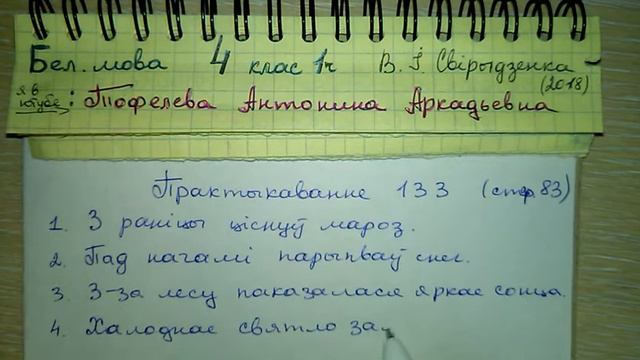 Бел. мова 4 клас 1ч В. І. Свірыдзенка
(2018)
я в ютубе: Тюфелева Антонина Аркадьевна
Практыкаванне 133 (стр. 83)
1. З раніцы ціснуў мароз.
2. Пад нагамі парыпваў снег.
3. З-за лесу паказалася яркае сонца.
4. Халоднае святло за